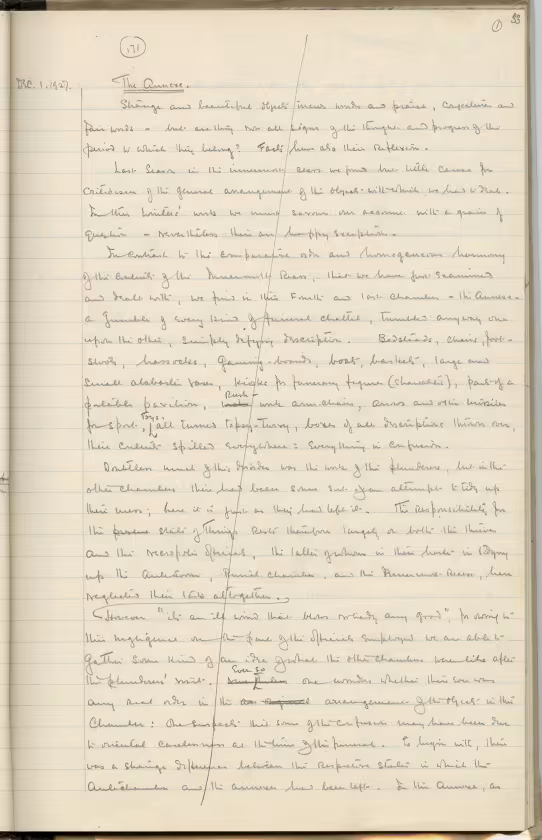 ① 33
(1)
DEC. 1. 1927. The Annexe.
Strange and beautiful objects means wonder and praise, conjecture and
fair words - but are they not all signs of the thought and progress of the
period to which they belong? Facts have also their Reflexion.
Last Season in the innermost we found but little cause for
criticism of the general arrangement of the objects with which we had to deal.
In this Winter's work we must savour our account with a grain of
question - nevertheless there are happy exceptions.
In contrast to the comparative order and homogeneous harmony
of the contents of the Innermost Room, that we have just examined
and dealt with, we find in this Fourth and last Chamber - the Annexe -
a jumble of every kind of funeral chattel, tumbled any way one
upon the other, simply defying description. Bedsteads, chairs, foot-
stools, hassocks, Gaming-boards, boats, baskets, large and
small alabaster vases, Kiosks for funerary figures (Shawabtis), part of a
portable pavilion, Rush-work arm-chair, arrows and other missiles
for sport, Toys, all turned topsy-turvy, boxes of all descriptions thrown over,
their contents spilled everywhere: Everything in confusion.
Doubtless much of this disorder was the work of the plunderers, but in the
other chambers there had been some sort of an attempt to tidy up
their mess; here it is just as they had left it. The Responsibility for
this state of things Rests therefore largely on both the thieves
and the Necropolis Officials, the latter in their in tidying
up the Antechamber, Burial Chamber, and the Innermost Room, have
neglected this task altogether.
However "it's an ill wind that blows nobody any good", for owing to
this negligence on the part of the Officials employed we are able to
gather some kind of an idea of what the other chambers were like after
the plunderers' visit. Even so one wonders whether there ever was
any real order in the arrangement of the objects in this
Chamber: One suspects that some of the Confusion may have been due
to oriental carelessness at the time of the funeral. To begin with, there
was a strange difference between the respective states in which the
Antechamber and the annexe had been left. In this Annexe, as